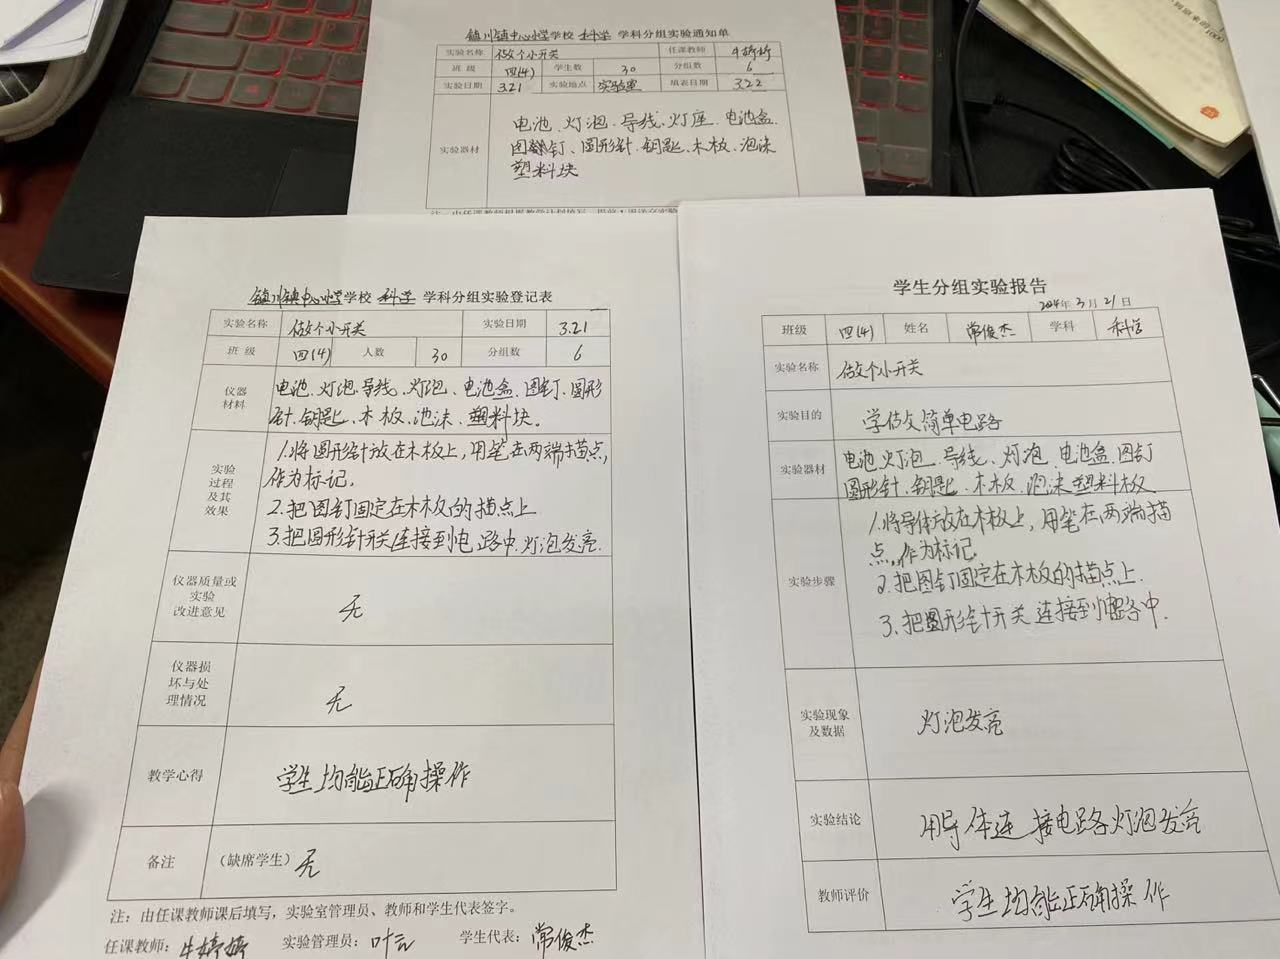 镇川镇中心小学学校 科学 学科分组实验通知单
实验名称 做个小开关 任课教师 牛婷婷
班 级 四(4) 学生数 30 分组数 6
实验日期 3.21 实验地点 实验室 填表日期 3.22
实验器材 电池、灯泡、导线、灯座、电池盒
图钉、圆形针、钥匙、木板、泡沫
塑料块
镇川镇中心小学学校 科学 学科分组实验登记表
实验名称 做个小开关 实验日期 3.21
班 级 四(4) 人数 30 分组数 6
仪器材料 电池、灯泡、导线、灯泡、电池盒、图钉、圆形
针、钥匙、木板、泡沫、塑料块。
实验过程及其效果 1.将圆形针放在木板上,用笔在两端描点,
作为标记.
2.把图钉固定在木板的描点上
3.把圆形针开关连接到电路中.灯泡发亮.
仪器质量或实验改进意见 无
仪器损坏与处理情况 无
教学心得 学生均能正确操作
备注 (缺席学生) 无
注:由任课教师课后填写,实验室管理员、教师和学生代表签字。
任课教师: 牛婷婷 实验管理员: 叶云 学生代表: 常俊杰
学生分组实验报告
2024年3月21日
班级 四(4) 姓名 常俊杰 学科 科学
实验名称 做个小开关
实验目的 学做简单电路
实验器材 电池 灯泡、导线、灯泡、电池盒、图钉
圆形针、钥匙、木板、泡沫 塑料板
实验步骤 1.将导体放在木板上,用笔在两端描
点,作为标记.
2.把图钉固定在木板的描点上.
3.把圆形针开关连接到电路中.
实验现象及数据 灯泡发亮
实验结论 用导体连接电路灯泡发亮
教师评价 学生均能正确操作